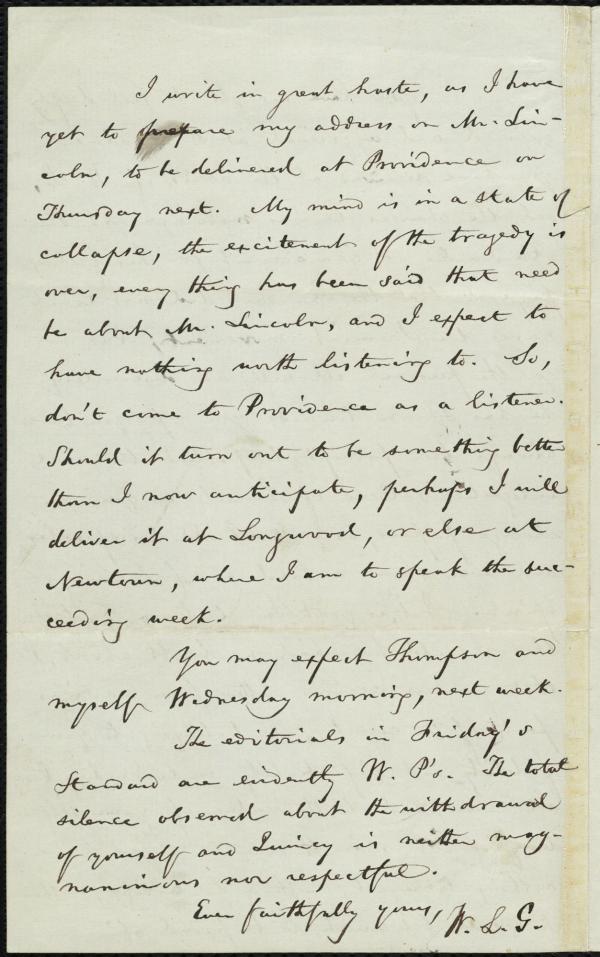 I write in great haste, as I have
yet to prepare my address on Mr. Lin-
coln, to be delivered at Providence on
Thursday next. My mind is in a state of
collapse, the excitement of the tragedy is
over, every thing has been said that need
be about Mr. Lincoln, and I expect to
have nothing worth listening to. So,
don't come to Providence as a listener.
Should it turn out to be something better
than I now anticipate, perhaps I will
deliver it at Longwood, or else at
Newtown, where I am to speak the suc-
ceeding week.
You may expect Thompson and
myself Wednesday morning, next week.
The editorials in Friday's
Standard are evidently W. P's. The total
silence observed about the withdrawal
of yourself and Quincy is neither mag-
nanimous nor respectful.
Ever faithfully yours, W. L. G.